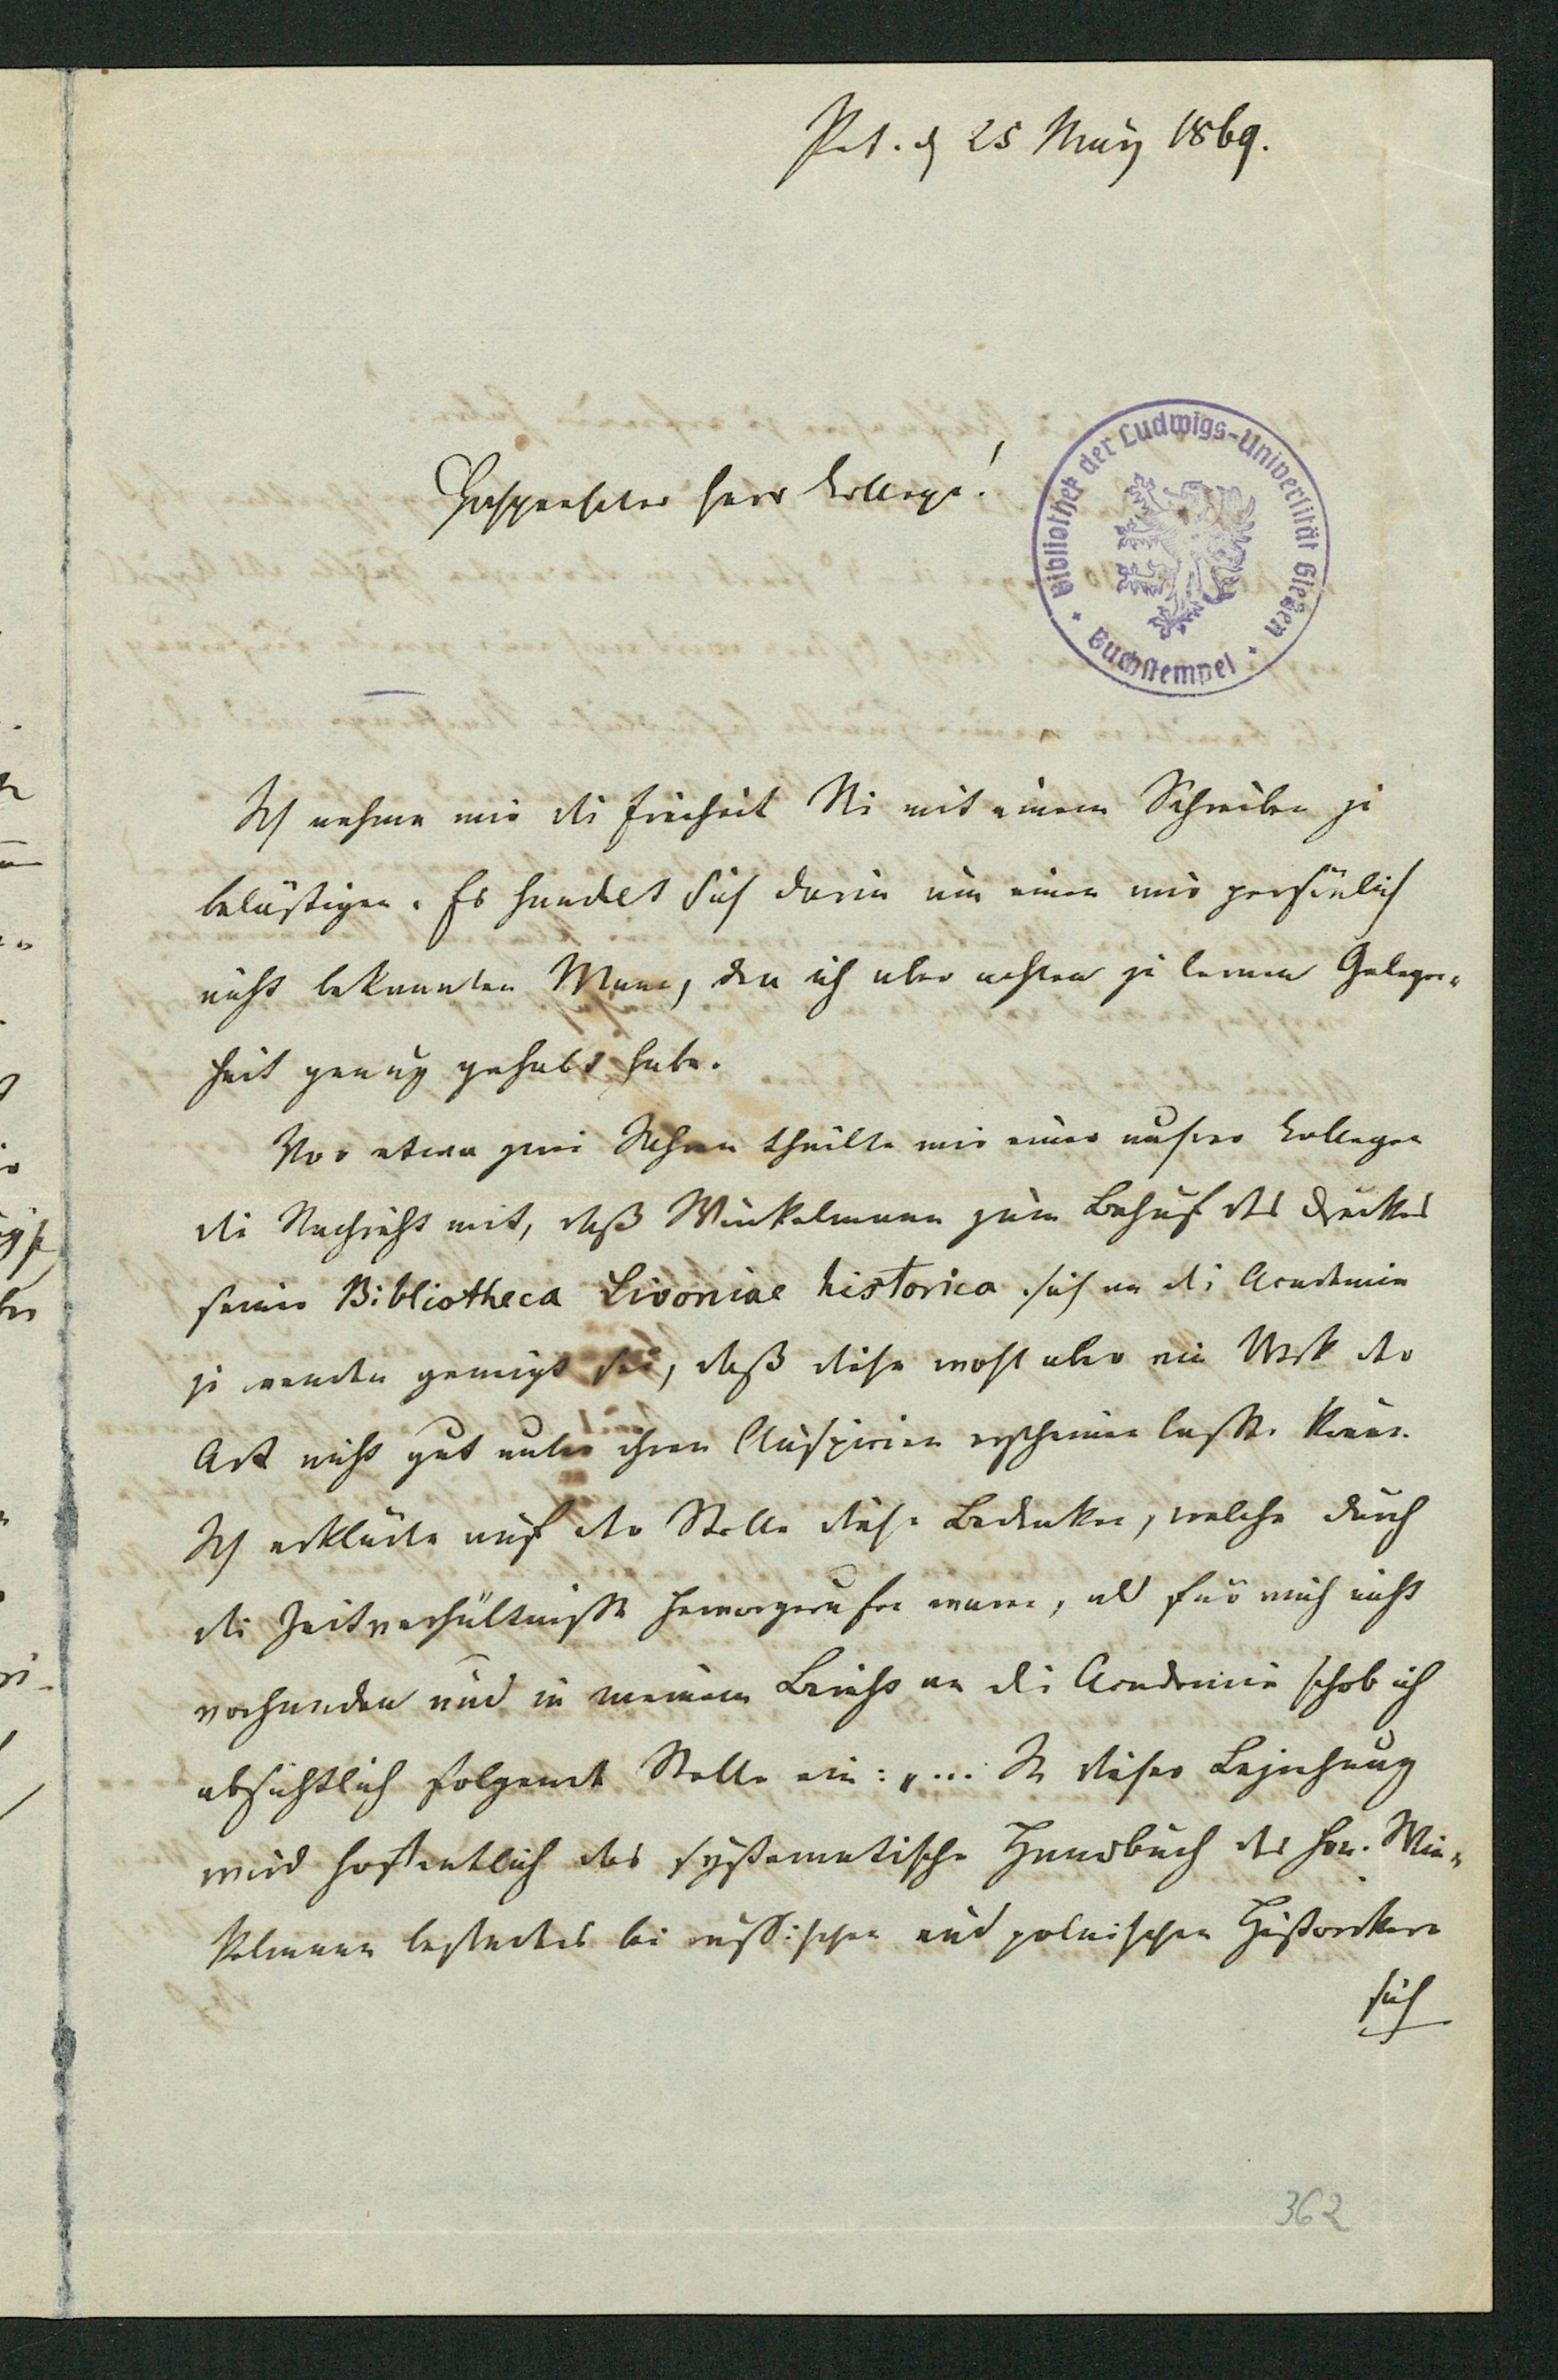 Pet. d 25 May 1869.
Hochgeehrter Herr College!
Bibliothek der Ludwigs-Universität Gießen
Buchstempel
Ich nehme mir die Freiheit Sie mit einem Schreiben zu
belästigen. Es handelt sich darin um einen mir persönlich
nicht bekannten Mann, den ich aber achten zu lernen Gelegen-
heit genug gehabt habe.
Vor etwa zwei Jahren theilte mir einer unsrer Collegen
die Nachricht mit, daß Winkelmann zum Behuf des Druckes
seiner Bibliotheca Livoniae historica sich an die Academie
zu wenden geneigt sei, daß diese wohl aber ein Werk der
Art nicht gut unter ihren Auspicien erscheinen lassen könne.
Ich erklärte auf der Stelle diese Bedenken, welche durch
die Zeitverhältnisse hervorgerufen waren, als für mich nicht
vorhanden und in meinem Bericht an die Academie schob ich
absichtlich folgende Stelle ein: „... In dieser Beziehung
wird hoffentlich das systematische Handbuch des Hrn. Win-
kelmann bestens bei russischen und polnischen Historikern
sich
362